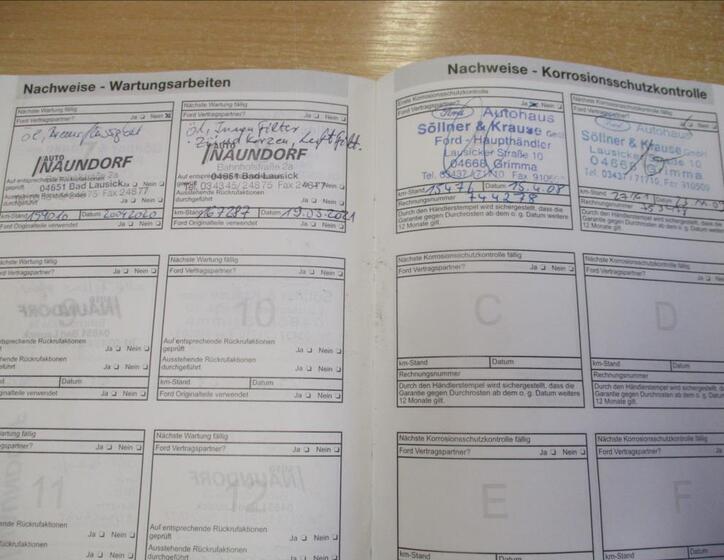 Nachweise - Wartungsarbeiten
Nächste Wartung fällig
Ford Vertragspartner? Ja Nein
öl, Bremsflüssigkeit
AUTO
NAUNDORF
Bahnhofstraße 2a
04651 Bad Lausick
Auf entsprechende Rückrufaktionen
geprüft Ja Nein
Ausstehende Rückrufaktionen
durchgeführt
km-Stand Datum 20042020
Ford Originalteile verwendet
Nächste Wartung fällig
Ford Vertragspartner? Ja Nein
öl, Innen Filter
Zündkerzen, Luftfilt.
AUTO
NAUNDORF
Bahnhofstraße 2a
04651 Bad Lausick
Tel. 034345/24875 Fax 24877
km-Stand 167287 Datum 19.03.2021
Ford Originalteile verwendet
Nächste Wartung fällig
Ford Vertragspartner? Ja Nein
entsprechende Rückrufaktionen
Ja Nein
stehende Rückrufaktionen
Ja Nein
Datum
Originalteile verwendet
Nächste Wartung fällig
Ford Vertragspartner? Ja Nein
10
Auf entsprechende Rückrufaktionen
geprüft Ja Nein
Ausstehende Rückrufaktionen
durchgeführt Ja Nein
km-Stand Datum
Ford Originalteile verwendet
Wartung fällig
Ja Nein
11
Rückrufaktionen
Ja Nein
Rückrufaktionen
Nächste Wartung fällig
Ford Vertragspartner? Ja Nein
12
Auf entsprechende Rückrufaktionen
geprüft Ja Nein
Ausstehende Rückrufaktionen
durchgeführt
Nachweise - Korrosionsschutzkontrolle
Erste Korrosionsschutzkontrolle
Ford Vertragspartner? Ja Nein
Ford Autohaus
Söllner & Krause GmbH
Ford - Haupthändler
Lausicker Straße 10
04668 Grimma
km-Stand 15476 Datum 15.4.08
Rechnungsnummer 744278
Durch den Händlerstempel wird sichergestellt, dass die
Garantie gegen Durchrosten ab dem o. g. Datum weitere
12 Monate gilt.
Nächste Korrosionsschutzkontrolle fällig
Ford Vertragspartner? Ja
Autohaus
Söllner & Krause
Lausicker
04668 Grimma
Tel. 03437/71710, Fax 910509
km-Stand
Rechnungsnummer
Durch den Händlerstempel wird sichergestellt, dass die
Garantie gegen Durchrosten ab dem o. g. Datum weitere
12 Monate gilt.
Nächste Korrosionsschutzkontrolle fällig
Ford Vertragspartner? Ja Nein
C
km-Stand Datum
Rechnungsnummer
Durch den Händlerstempel wird sichergestellt, dass die
Garantie gegen Durchrosten ab dem o. g. Datum weitere
12 Monate gilt.
Nächste Korrosionsschutzkontrolle fällig
Ford Vertragspartner?
D
km-Stand Datum
Rechnungsnummer
Durch den Händlerstempel wird sichergestellt
Garantie gegen Durchrosten ab dem o. g. Datum
12 Monate gilt.
Nächste Korrosionsschutzkontrolle fällig
Ford Vertragspartner? Ja Nein
E
km-Stand Datum
Nächste Korrosionsschutzkontrolle fällig
Ford Vertragspartner? Ja
F
km-Stand Datum